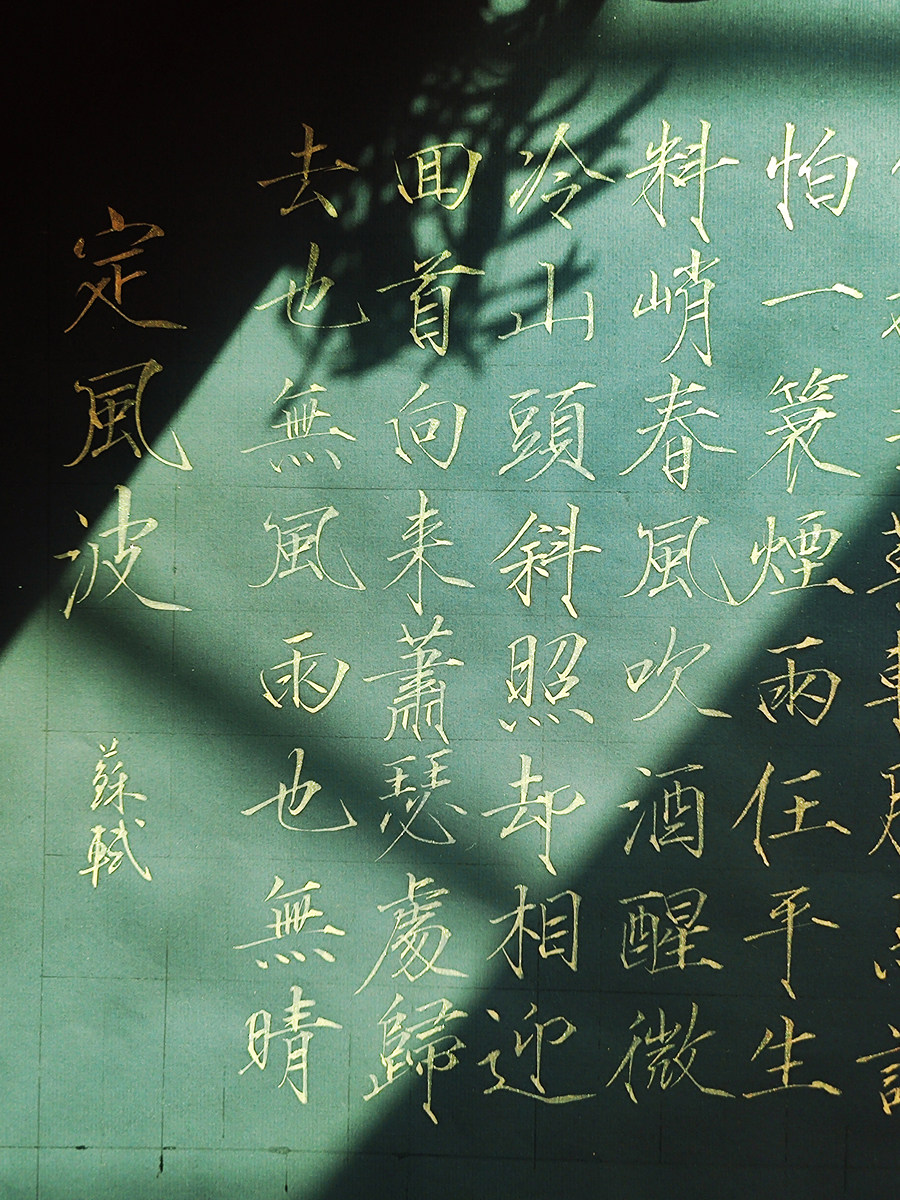 怕一簑煙雨任平生
料峭春風吹酒醒微
冷山頭斜照却相迎
回首向来蕭瑟處歸
去也無風雨也無晴
定風波
蘇軾